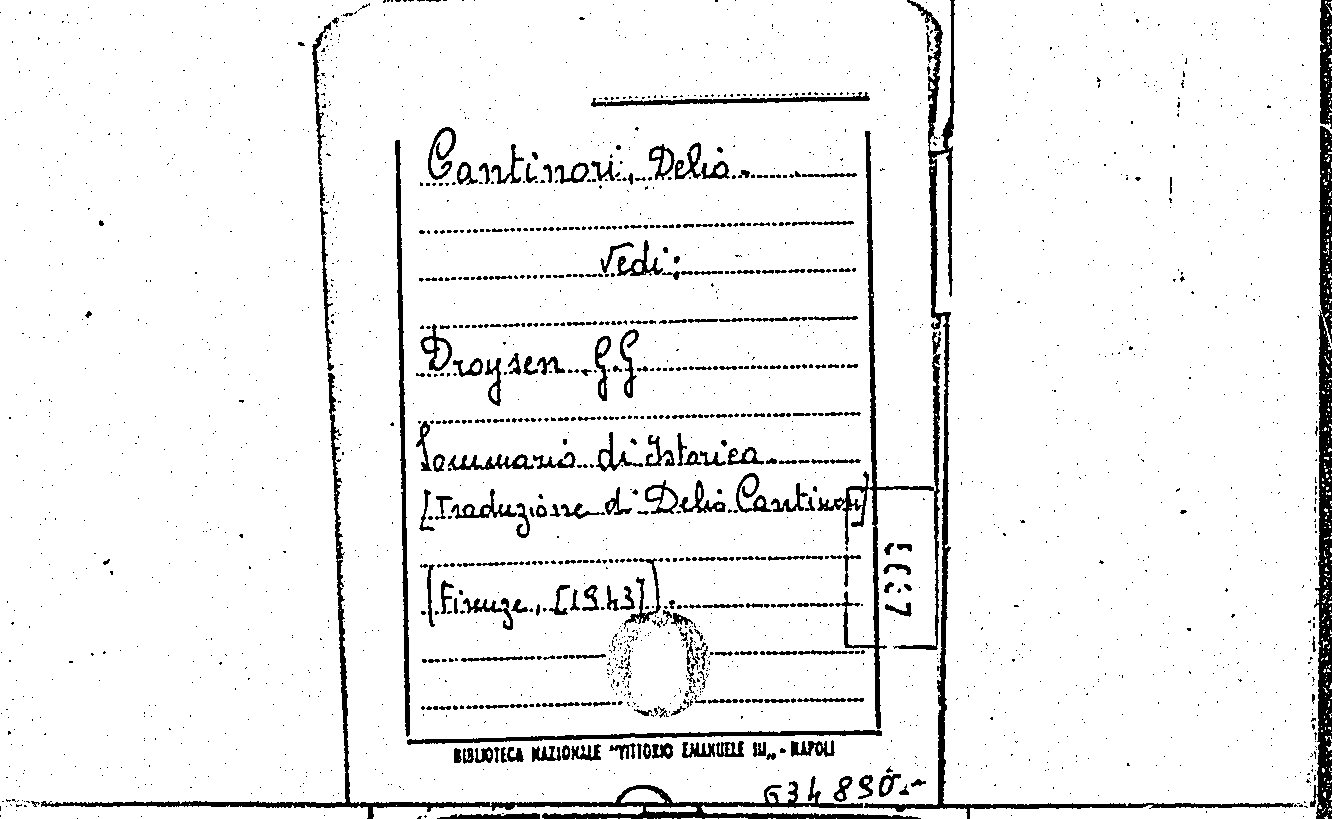 Cantinori, Delio.
Vedi:
Droysen G.G
Sommario di Istorica
[Traduzione di Delio Cantinori]
(Firenze, [1943]).
BIBLIOTECA NAZIONALE "VITTORIO EMANUELE III„ - NAPOLI
634890